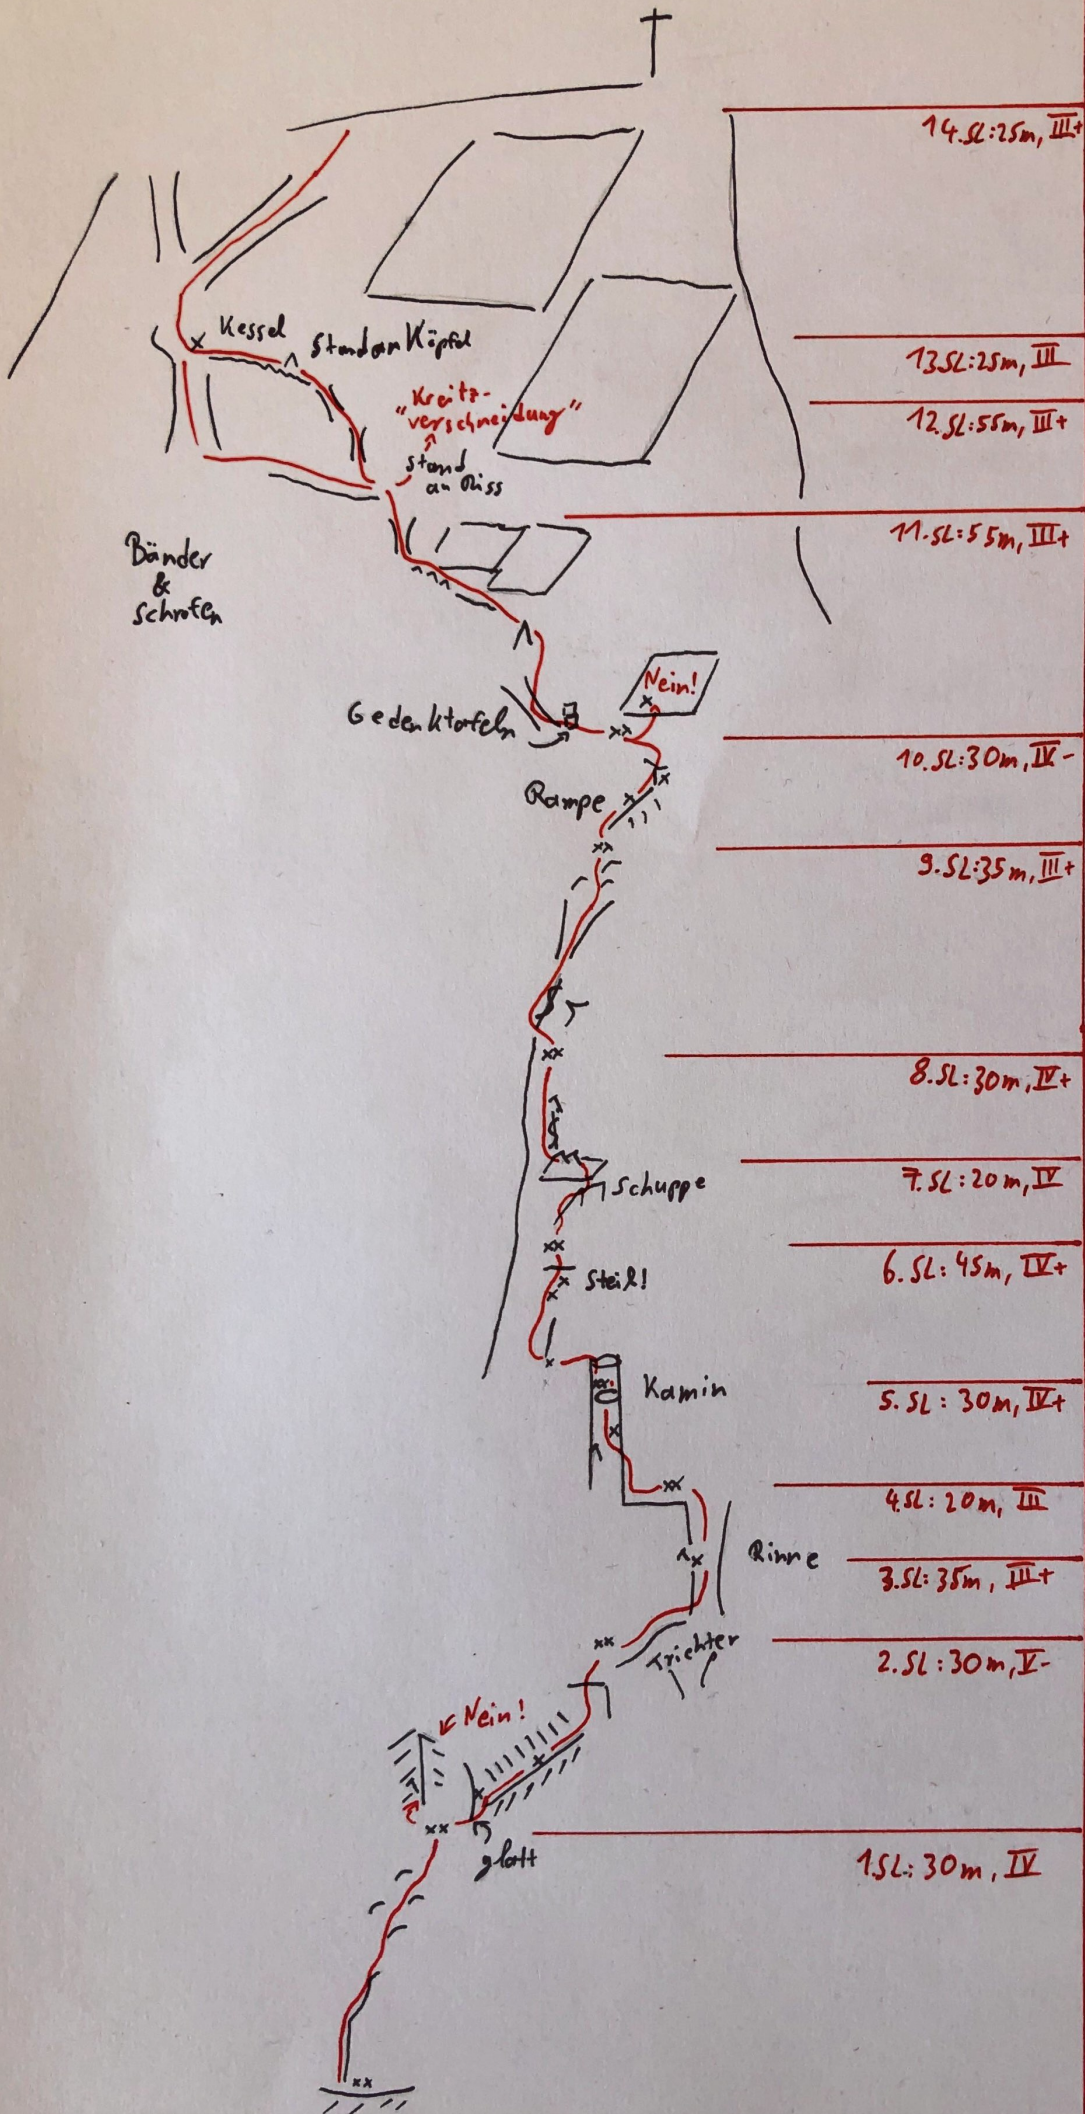 14.SL:25m, III+
Kessel
Stand am Köpfel
13.SL:25m, III
"Kreitz-
verschneidung"
12.SL:55m, III+
Stand
an Riss
11.SL:55m, III+
Bänder
&
Schrofen
Nein!
Gedenktafeln
10.SL:30m, IV-
Rampe
9.SL:35m, III+
8.SL:30m, IV+
7.SL:20m, IV
Schuppe
6.SL:45m, IV+
Steil!
Kamin
5.SL:30m, IV+
4.SL:20m, III
Rinne
3.SL:35m, III+
Trichter
2.SL:30m, V-
Nein!
glatt
1.SL:30m, IV